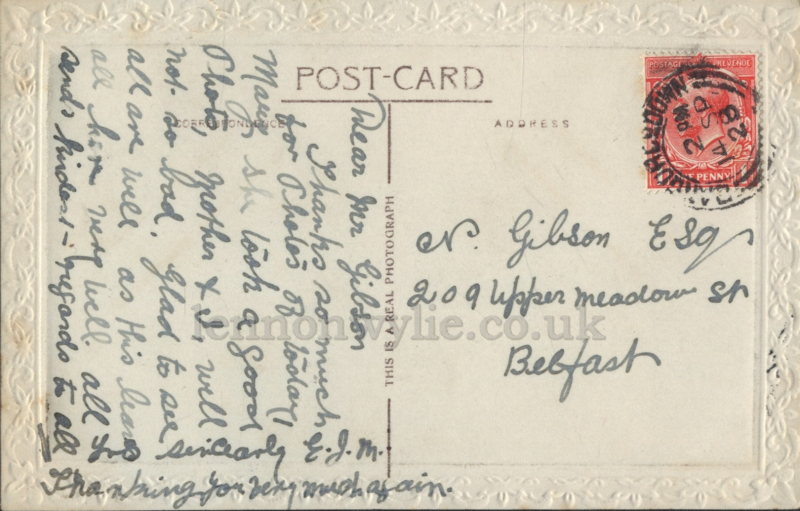 POST-CARD
CORRESPONDENCE
ADDRESS
THIS IS A REAL PHOTOGRAPH
Dear Mr Gibson
Thanks so much
for Photos of today,
she took a good
Photo, Mother & I, will
not so bad, Glad to see
all are well as this leaves
all here very well all
sends kindest regards to all
Yrs sincerely E.J.M.
Thanking you very much again.
N. Gibson Esq
209 Upper meadow St
Belfast
POSTAGE REVENUE
PENNY
DOWN
2 PM
14 SP
28
lennonwylie.co.uk